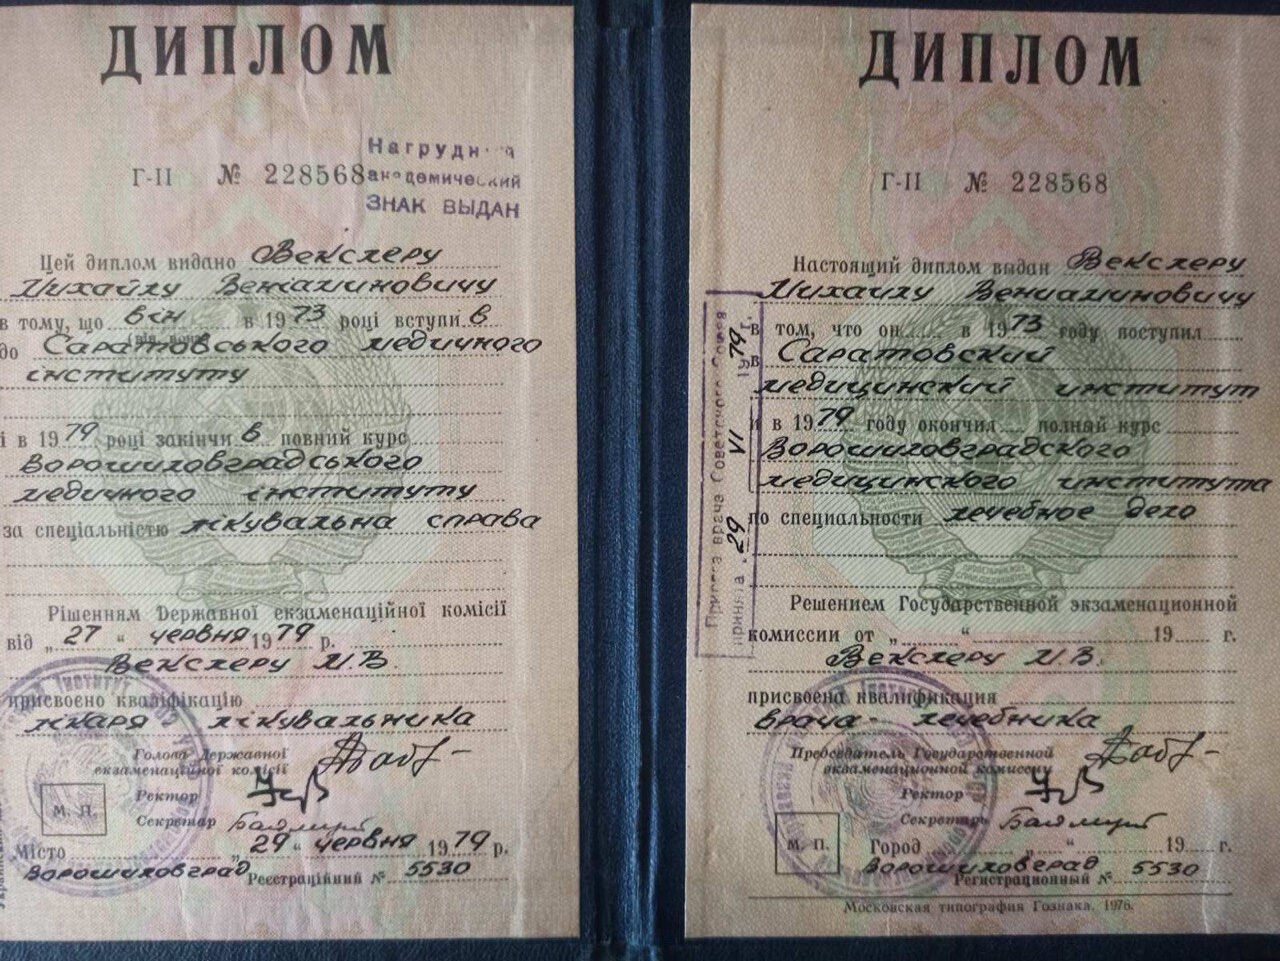 ДИПЛОМ
Г-II № 228568
Нагрудн
академический
ЗНАК ВЫДАН
Цей диплом видано Векслеру
Михайлу Веніаминовичу
в тому, що він в 1973 році вступив
до Саратовського медичного
інституту
і в 1979 році закінчив повний курс
Ворошиловградського
медичного інституту
за спеціальністю лікувальна справа
Рішенням Державної екзаменаційної комісії
від „27“ червня 1979 р.
Векслеру М.В.
присвоено кваліфікацію
лікаря лікувальника
Голова Державної
екзаменаційної комісії
Ректор
Секретар
М. П.
Місто „29“ червня 1979 р.
Ворошиловград
Реєстраційний № 5530
ДИПЛОМ
Г-II № 228568
Настоящий диплом выдан Векслеру
Михаилу Вениаминовичу
в том, что он в 1973 году поступил
в Саратовский
медицинский институт
и в 1979 году окончил полный курс
Ворошиловградского
медицинского института
по специальности лечебное дело
Решением Государственной экзаменационной
комиссии от „ “ 19 г.
Векслеру М.В.
присвоена квалификация
врача-лечебника
Председатель Государственной
экзаменационной комиссии
Ректор
Секретарь
М. П.
Город „ “ 19 г.
Ворошиловград
Регистрационный № 5530
Московская типография Гознака. 1976.
врача Советского Союза
29 VI 1979 г.